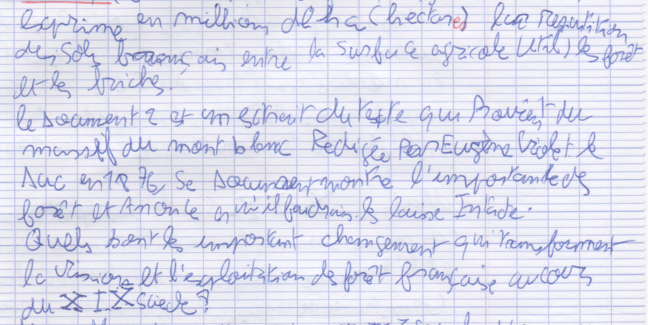 exprime en million de ha (hectares) la repartition
des Sols français entre la surface agricole (utile) les forêt
et les friches.
le Document 2 est un extrait du texte qui Provient du
massif du mont blanc Rédigée Par Eugène Violet le
Duc en 1876, Se Document montre l'importante des
forêt et Anonce il faudrais les laisse Intacte.
Quels sont les important changement qui transforment
la vision et l'exploitation des forêt française au cours
du XIX Siècle ?